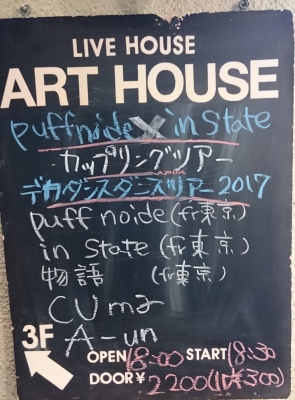 LIVE HOUSE
ART HOUSE
puffnoide X in State
カップリングツアー
デカダンスダンスツアー2017
puff noide (fr東京)
in State (fr東京)
物語 (fr東京)
CUma
A-un
3F
OPEN 18:00 START 18:30
DOOR ¥2200(1D¥300)